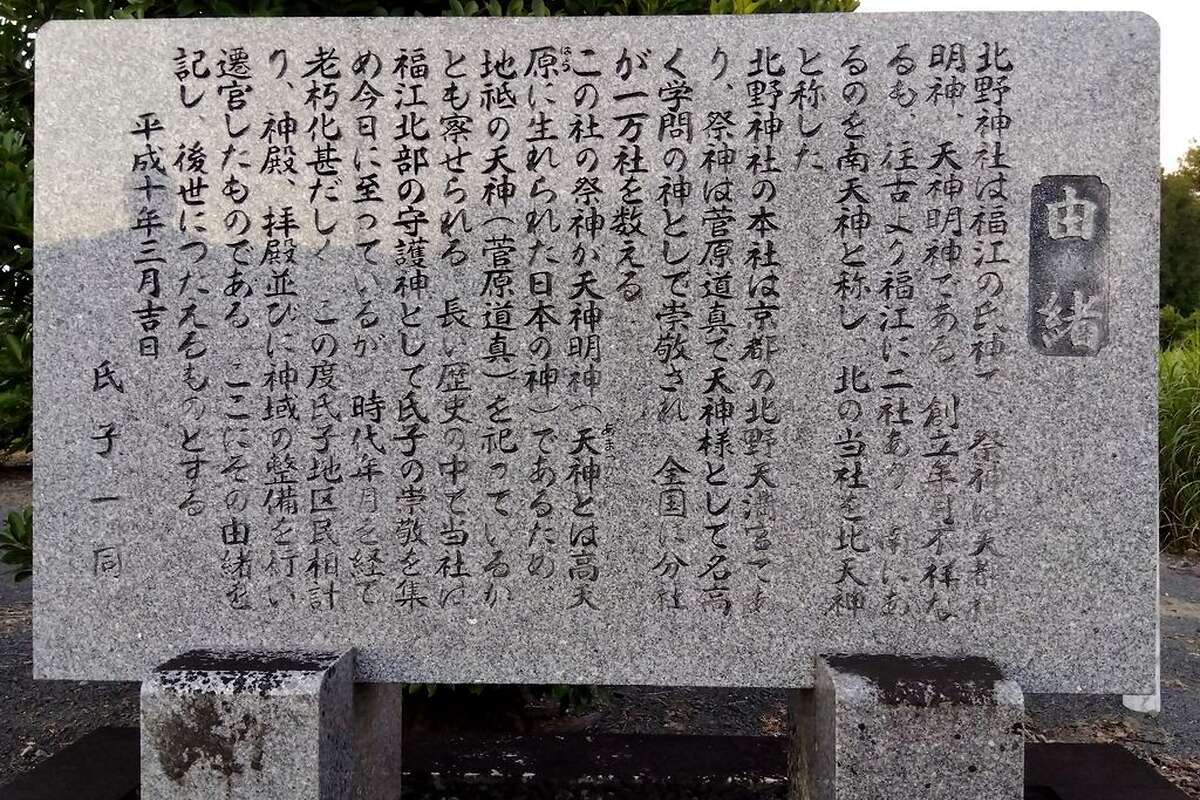 由緒
北野神社は福江の氏神で 祭神は天都
明神、天神明神である 創立年月不祥な
るも、往古より福江に二社あり 南にあ
るのを南天神と称し、北の当社を北天神
と称した
北野神社の本社は京都の北野天満宮であ
り、祭神は菅原道真で天神様として名高
く学問の神として崇敬され、全国に分社
が一万社を数える
この社の祭神か天神明神(天神とは高天
あまつかみ
原に生れられた日本の神)であるため
はら
地祗の天神(菅原道真)を祀っているか
とも察せられる 長い歴史の中で当社は
福江北部の守護神として氏子の崇敬を集
め今日に至っているが 時代年月を経て
老朽化甚だしく この度氏子地区民相計
り、神殿、拝殿並びに神域の整備を行い
遷宮したものである ここにその由緒を
記し、後世につたえるものとする
平成十年三月吉日
氏子一同